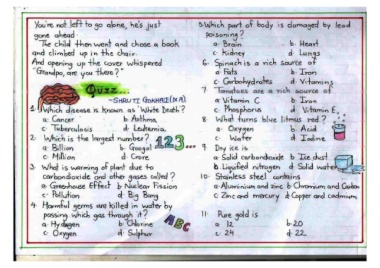 You're not left to go alone, he's just
gone ahead.
The child then went and chose a book
and climbed up in the chair.
And opening up the cover whispered
"Grandpa, are you there?"
Quizz...
-SHRUTI GOKHALE
1. Which disease is known as 'White Death'?
a. Cancer b. Asthma
c. Tuberculosis d. Leukemia
2. Which is the largest number? 123...
a. Billion b. Googol
c. Million d. Crore
3. What is warming of plant due to
carbondioxide and other gases called?
a. Greenhouse Effect b. Nuclear Fission
c. Pollution d. Big Bang
4. Harmful germs are killed in water by
passing which gas through it?
a. Hydrogen b. Chlorine
c. Oxygen d. Sulphur
ABC
5. Which part of body is damaged by lead
poisoning?
a. Brain b. Heart
c. Kidney d. Lungs
6. Spinach is a rich source of
a. Fats b. Iron
c. Carbohydrates d. Vitamins
7. Tomatoes are a rich source of
a. Vitamin C b. Iron
c. Phosphorus d. Vitamin E
8. What turns blue litmus red?
a. Oxygen b. Acid
c. Water d. Iodine
9. Dry ice is
a. Solid carbondioxide b. Ice dust
c. Liquified nitrogen d. Solid water
10. Stainless steel contains
a. Aluminium and zinc b. Chromium and Carbon
c. Zinc and mercury d. Copper and cadmium
11. Pure gold is
a. 12 b. 20
c. 24 d. 22